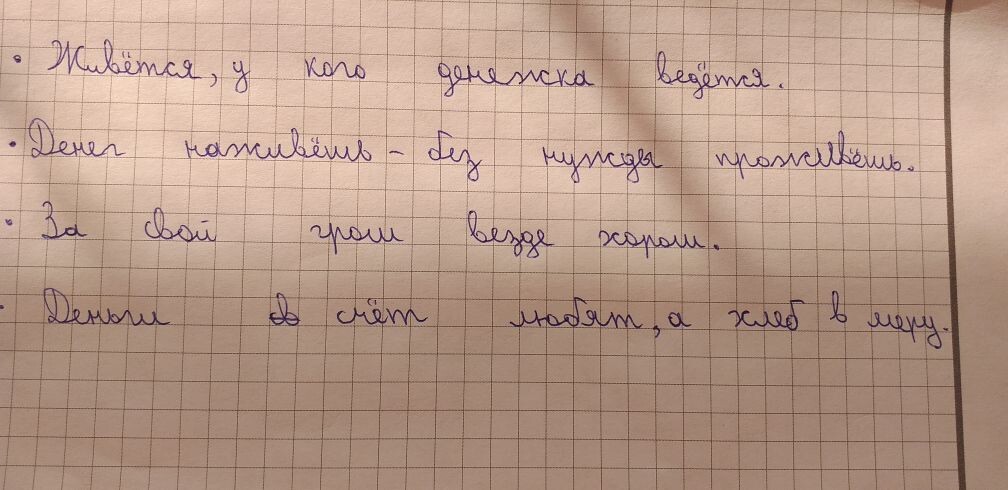 • Живётся, у кого денежка ведётся.
• Денег наживёшь - без нужды проживёшь.
• За свой грош везде хорош.
• Деньги счёт любят, а хлеб в меру.